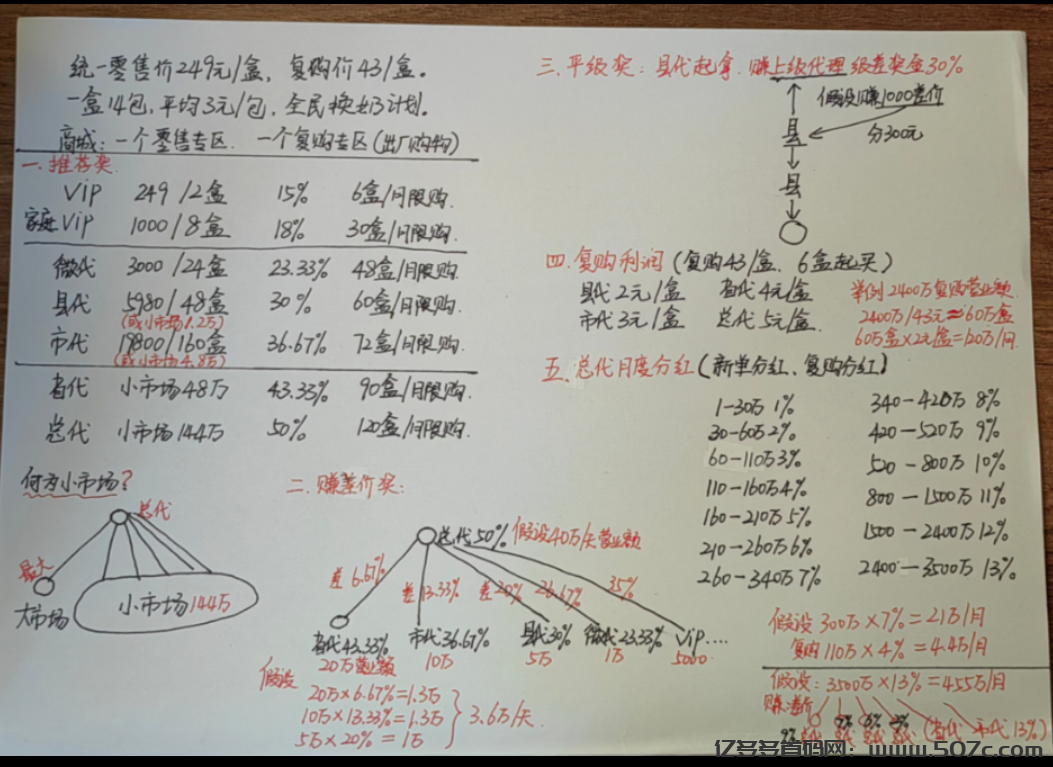 统一零售价249元/盒，复购价43/盒。
一盒14包，平均3元/包，全民换奶计划。
商城：一个零售专区. 一个复购专区(出厂购物)
一.推荐奖.
Vip 249/2盒 15% 6盒/月限购.
家庭Vip 1000/8盒 18% 30盒/月限购.
微代 3000/24盒 23.33% 48盒/月限购.
县代 5980/48盒 30% 60盒/月限购.
(或小市场1.2万)
市代 19800/160盒 36.67% 72盒/月限购.
(或小市场4.8万)
省代 小市场48万 43.33% 90盒/月限购.
总代 小市场144万 50% 120盒/月限购.
何为小市场?
总代
最大
大市场
小市场144万
二.赚差价奖:
总代50% 假设40万/天营业额
差6.67% 差13.33% 差20% 26.67% 35%
省代43.33% 市代36.67% 县代30% 微代23.33% Vip....
20万营业额 10万 5万 1万 5000.
假设
20万×6.67%=1.3万
10万×13.33%=1.3万
5万×20%=1万
3.6万/天.
三.平级奖:县代起拿.赚上级代理级差奖金30%
假设赚1000差价
县
分300元
县
四.复购利润(复购43/盒、6盒起买)
县代2元/盒 省代4元/盒
市代3元/盒 总代5元/盒.
举例2400万复购营业额.
2400万/43元≈60万盒
60万盒×2元/盒=120万/月.
五.总代月度分红(新单分红、复购分红)
1-30万1% 340-420万8%
30-60万2% 420-520万9%
60-110万3% 520-800万10%
110-160万4% 800-1500万11%
160-210万5% 1500-2400万12%
210-260万6% 2400-3500万13%
260-340万7%
假设300万×7%=21万/月
复购110万×4%=4.4万/月
假设:3500万×13%=455万/月
赚差价
(省代 市代13%)
亿多多首码网：www.507c.com